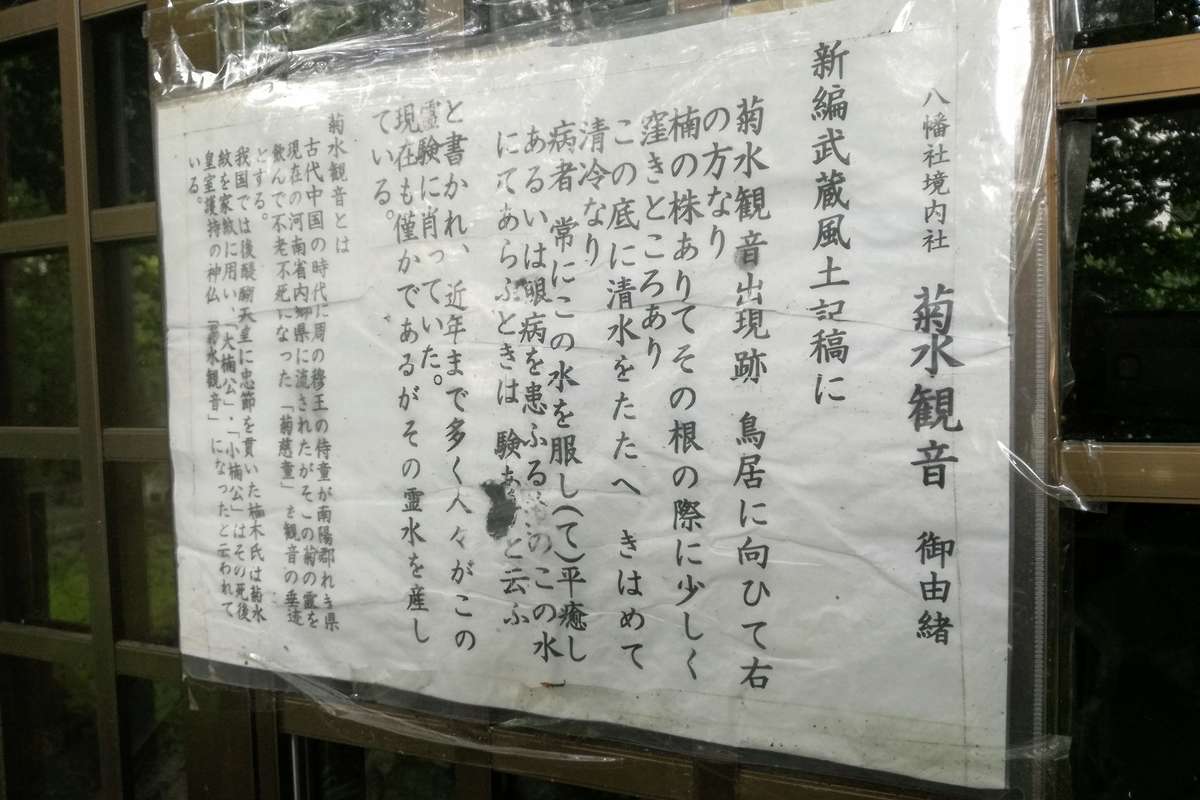 八幡社境内社 菊水観音 御由緒
新編武蔵風土記稿に
菊水観音出現跡 鳥居に向ひて右
の方なり
楠の株ありてその根の際に少しく
窪きところあり
この底に清水をたたへ きはめて
清冷なり
病者 常にこの水を服し(て)平癒し
あるいは眼病を患ふる のこの水
にてあらふときは 験あ と云ふ
と書かれ、近年まで多く人々がこの
霊験に肖っていた。
現在も僅かであるがその霊水を産し
ている。
菊水観音とは
古代中国の時代に周の穆王の侍童が南陽郡れき県
現在の河南省内郷県に流されたがその菊の露を
飲んで不老不死になった「菊慈童」を観音の垂迹
とする。
我国では後醍醐天皇に忠節を貫いた楠木氏は菊水
紋を家紋に用い、「大楠公」・「小楠公」はその死後
皇室護持の神仏「菊水観音」になったと云われて
いる。